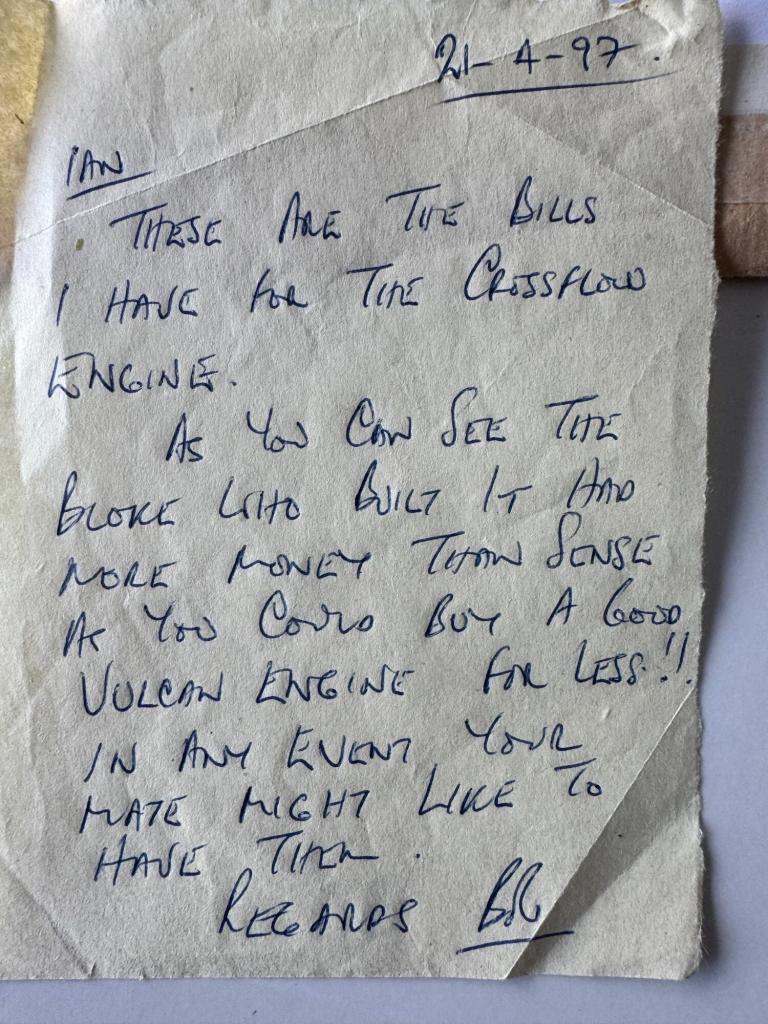 21-4-97.
IAN
THESE ARE THE BILLS
I HAVE FOR THE CROSSFLOW
ENGINE.
AS YOU CAN SEE THE
BLOKE WHO BUILT IT HAD
MORE MONEY THAN SENSE
AS YOU COULD BUY A GOOD
VULCAN ENGINE FOR LESS!!
IN ANY EVENT YOUR
MATE MIGHT LIKE TO
HAVE THEM.
REGARDS